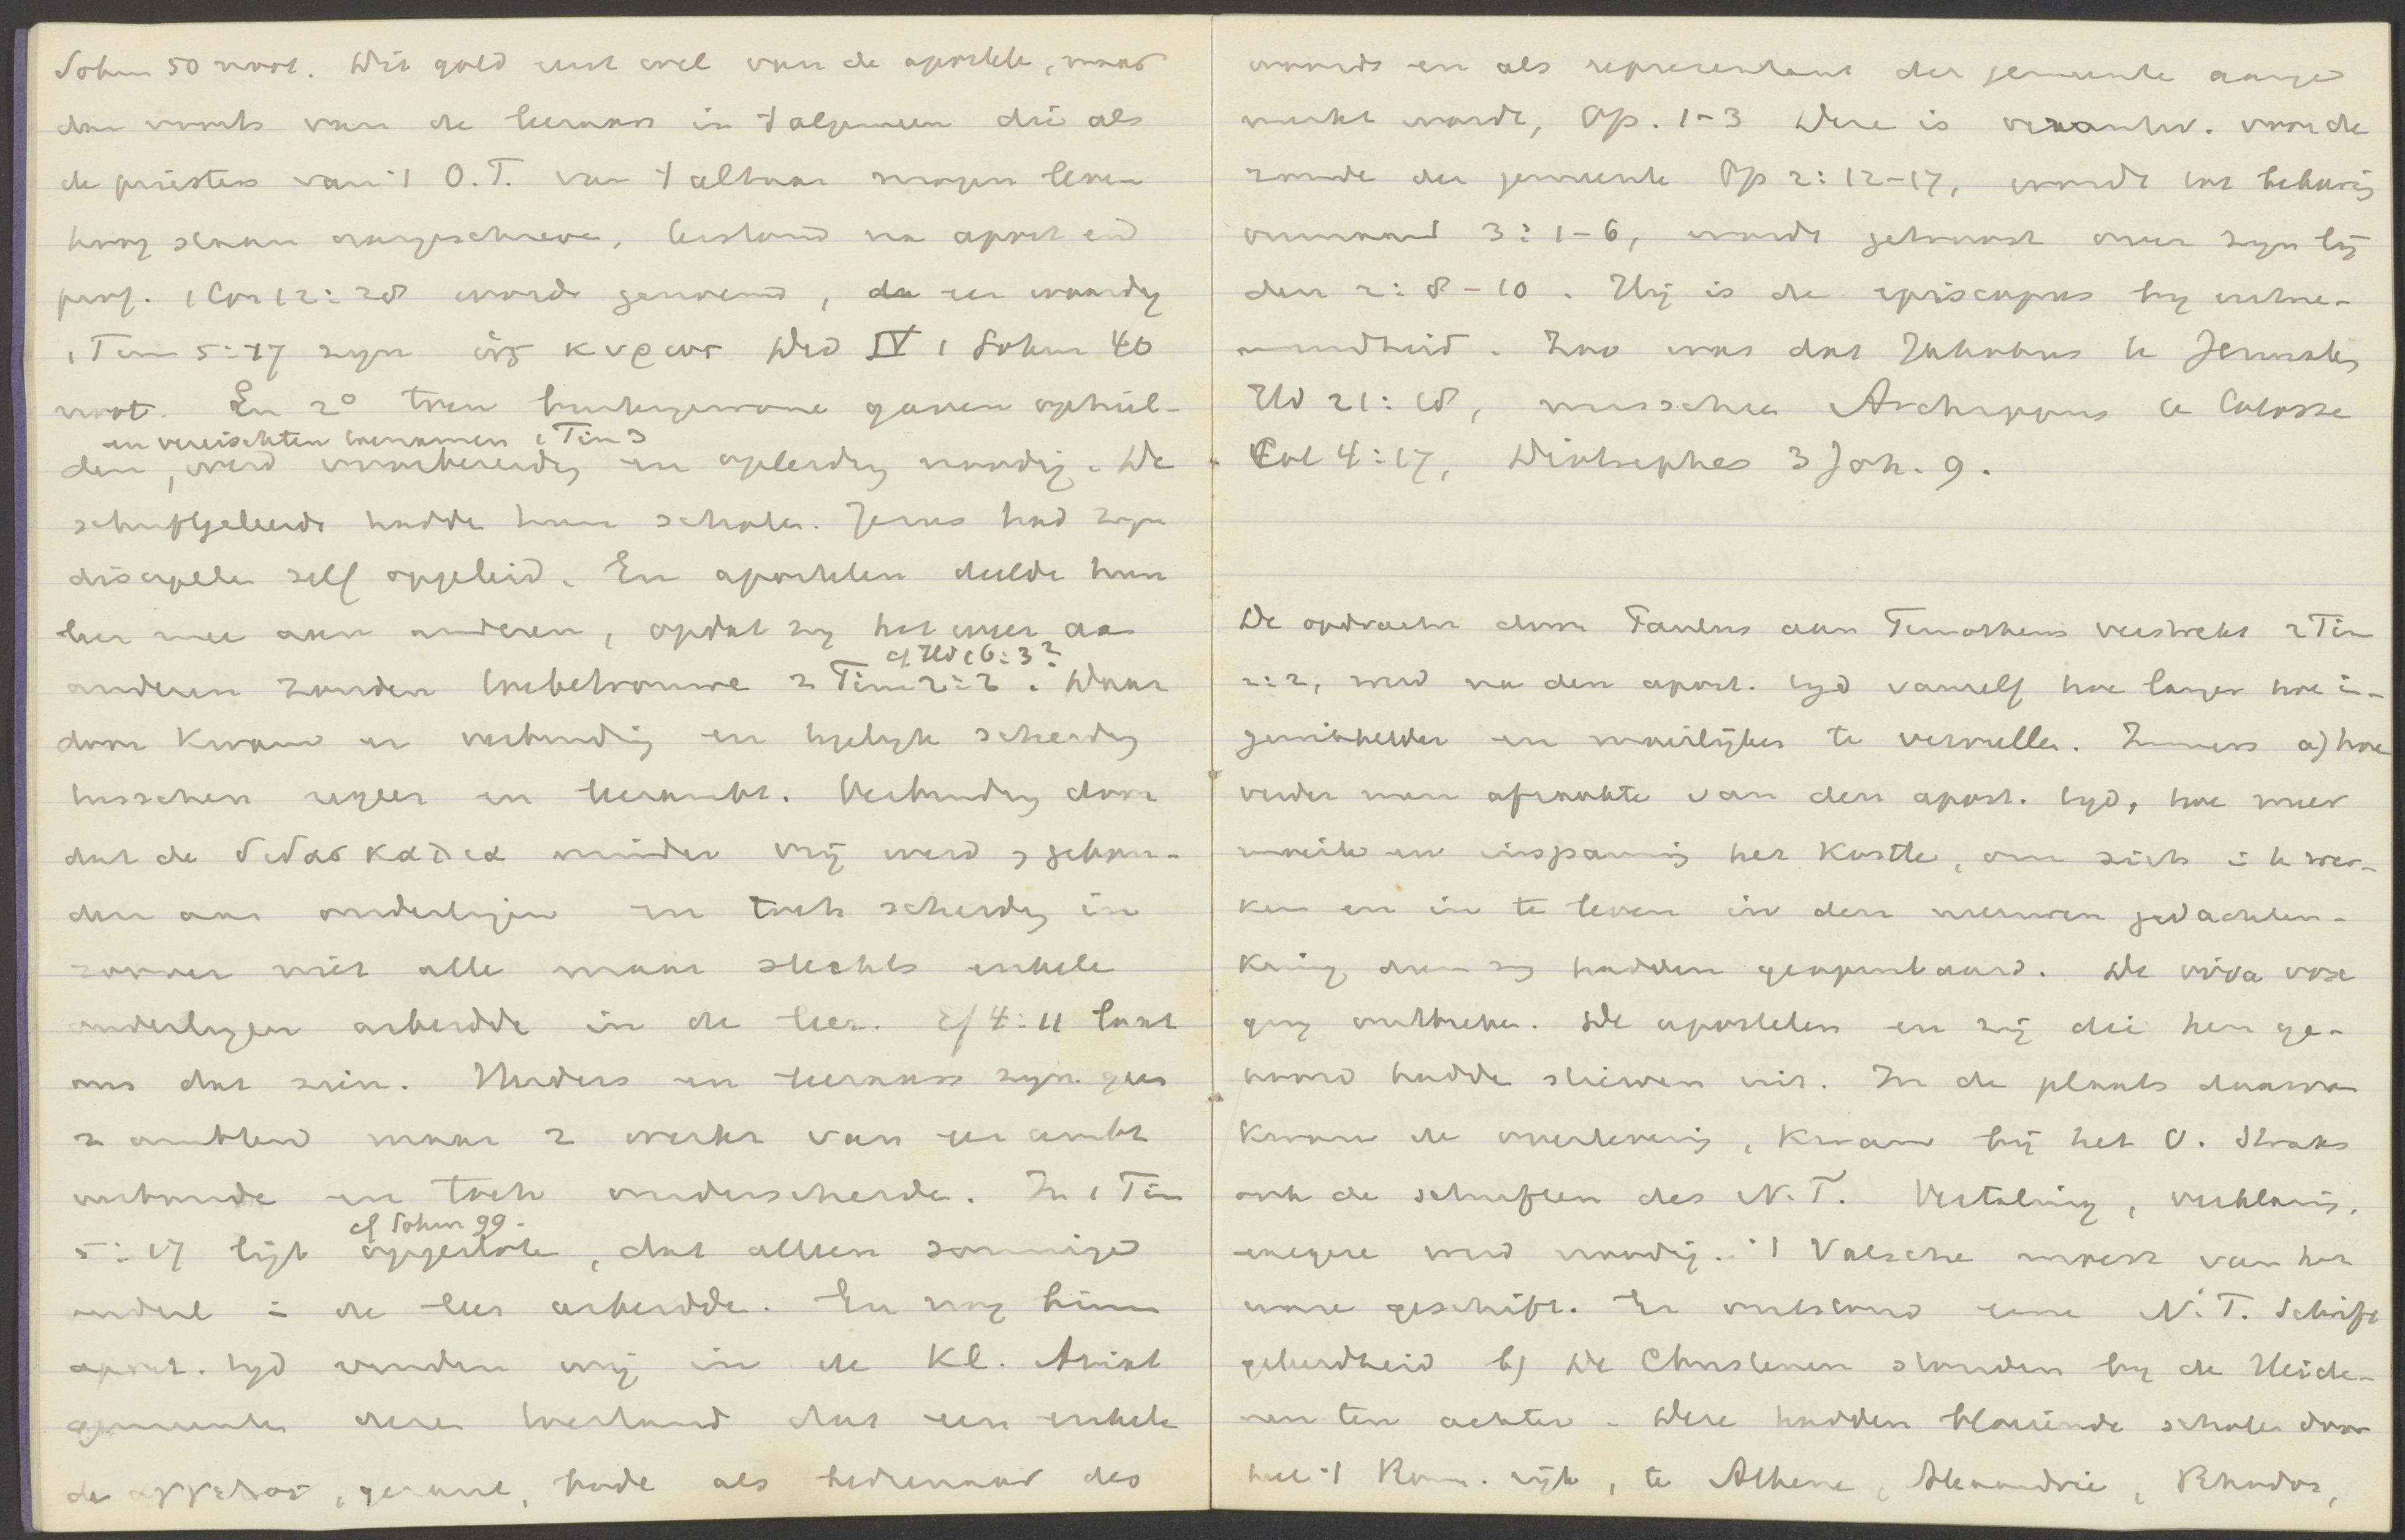 Sohm 50 noot. Dit gold eerst wel van de apostele, maar
dan voorts van de leeraars in 't algemeen die als
de priesters van 't O.T. van 't altaar mogen leven
hoog staan aangeschreve, terstond na apost en
prof. 1 Cor 12:28 worde genoemd, de eer waardig
1 Tim 5:17 zyn ὡς κυριος Did IV 1 Sohm 40
noot. En 2° toen buitengewone gaven ophiel-
en vereischten toenamen 1 Tim 3
den, werd voorbereidg en opleidg noodig. De
schriftgeleerde hadde hun schole. Jezus had zyn
discipele zelf opgeleid. En apostelen deelde hun
leer mee aan anderen, opdat zy het weer aa
cf Hd 16:3?
anderen zouden toebetrouwe 2 Tim 2:2. Daar
door kwam er verbinding en tegelyk scheidg
tusschen regeer en leerambt. Verbindg door
dat de διδασκαλια minder vrij werd, gebon-
den aan ouderlingen en toch scheidg in
zoover niet alle maar slechts enkele
ouderlingen arbeidde in de leer. Ef 4:11 laat
ons dat zien. Herders en leeraars zyn geen
2 ambten maar 2 werke van een ambt
verbonde en toch onderscheide. In 1 Tim
cf Sohm 99.
5:17 ligt opgeslote, dat alleen sommige
ouderl in de leer arbeidde. En nog binn
apost. tyd vinden wij in de Kl. Aziat
gemeente dezen toestand dat een enkele
de αγγελος, gezant, bode als bedienaar des
woords en als representant der gemeente aange
merkt wordt, Op. 1-3 Deze is verantw. voor de
zonde der gemeente Op 2:12-17, wordt tot bekeering
vermaand 3:1-6, wordt getroost over zyn lij
den 2:8-10. Hij is de episcopus by uitne-
mendheid. Zoo was dat Jakobus te Jeruzalem
Hd 21:18, misschien Archippus te Colosse
Col 4:17, Diotrephes 3 Joh. 9.
De opdracht door Paulus aan Timotheus verstrekt 2 Tim
2:2, werd na den apost. tyd vanzelf hoe langer hoe in-
gewikkelder en moeilijker te vervulle. Immers a) hoe
verder men afraakte van den apost. tyd, hoe meer
moeite en inspanning het kostte, om zich in te wer-
ken en in te leven in den nieuwen gedachten-
kring dien zy hadden geopenbaard. De viva vox
ging ontbreke. De apostelen en zij die hen ge-
hoord hadde stierven uit. In de plaats daarvan
kwam de overlevering, kwam bij het O. straks
ook de schriften des N.T. Vertaling, verklaring,
exegese werd noodig. 't Valsche moest van het
ware geschift. Er ontstond eene N.T. Schrift
geleerdheid b) De Christenen stonden by de Heide-
nen ten achter. Deze hadden bloeiende schole door
heel 't Rom. rijk, te Athene, Alexandrie, Rhodos,